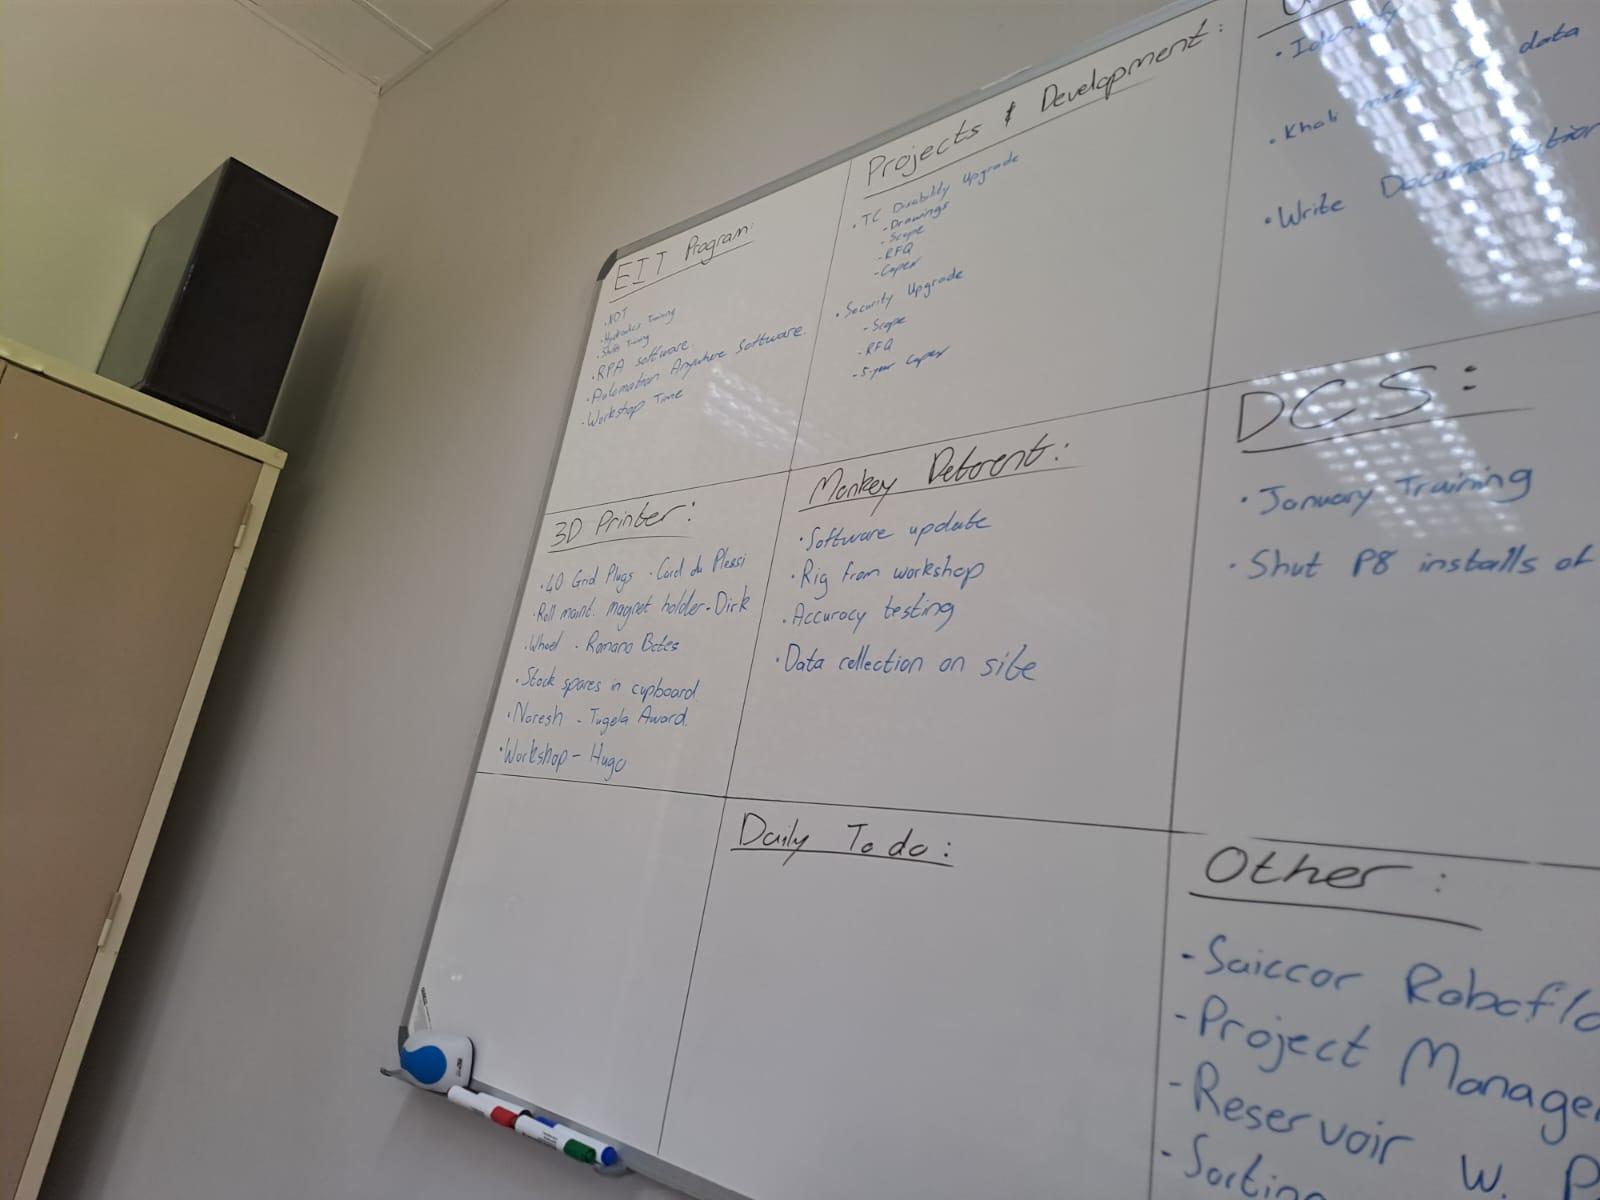 EIT Program:
• NDT
• Hydraulics Training
• RPA software.
• Automation Anywhere Software.
• Workshop Time
Projects & Development:
• TC Disability Upgrade
- Drawings
- Scope
- RFQ
- Capex
• Security Upgrade
- Scope
- RFQ
- 5-year Capex
• Identify
• Khali need for data
• Write Documentation
3D Printer:
• 40 Grid Plugs - Carel du Plessi
• Roll maint. magnet holder - Dirk
• Wheel - Romano Bates
• Stock spares in cupboard
• Naresh - Tugela Award.
• Workshop - Hugo
Monkey Deterent:
• Software update
• Rig from workshop
• Accuracy testing
• Data collection on site
DCS:
• January Training
• Shut P8 installs of
Daily To do:
Other:
- Saiccor Roboflo
- Project Manage
- Reservoir W. P
- Sorting